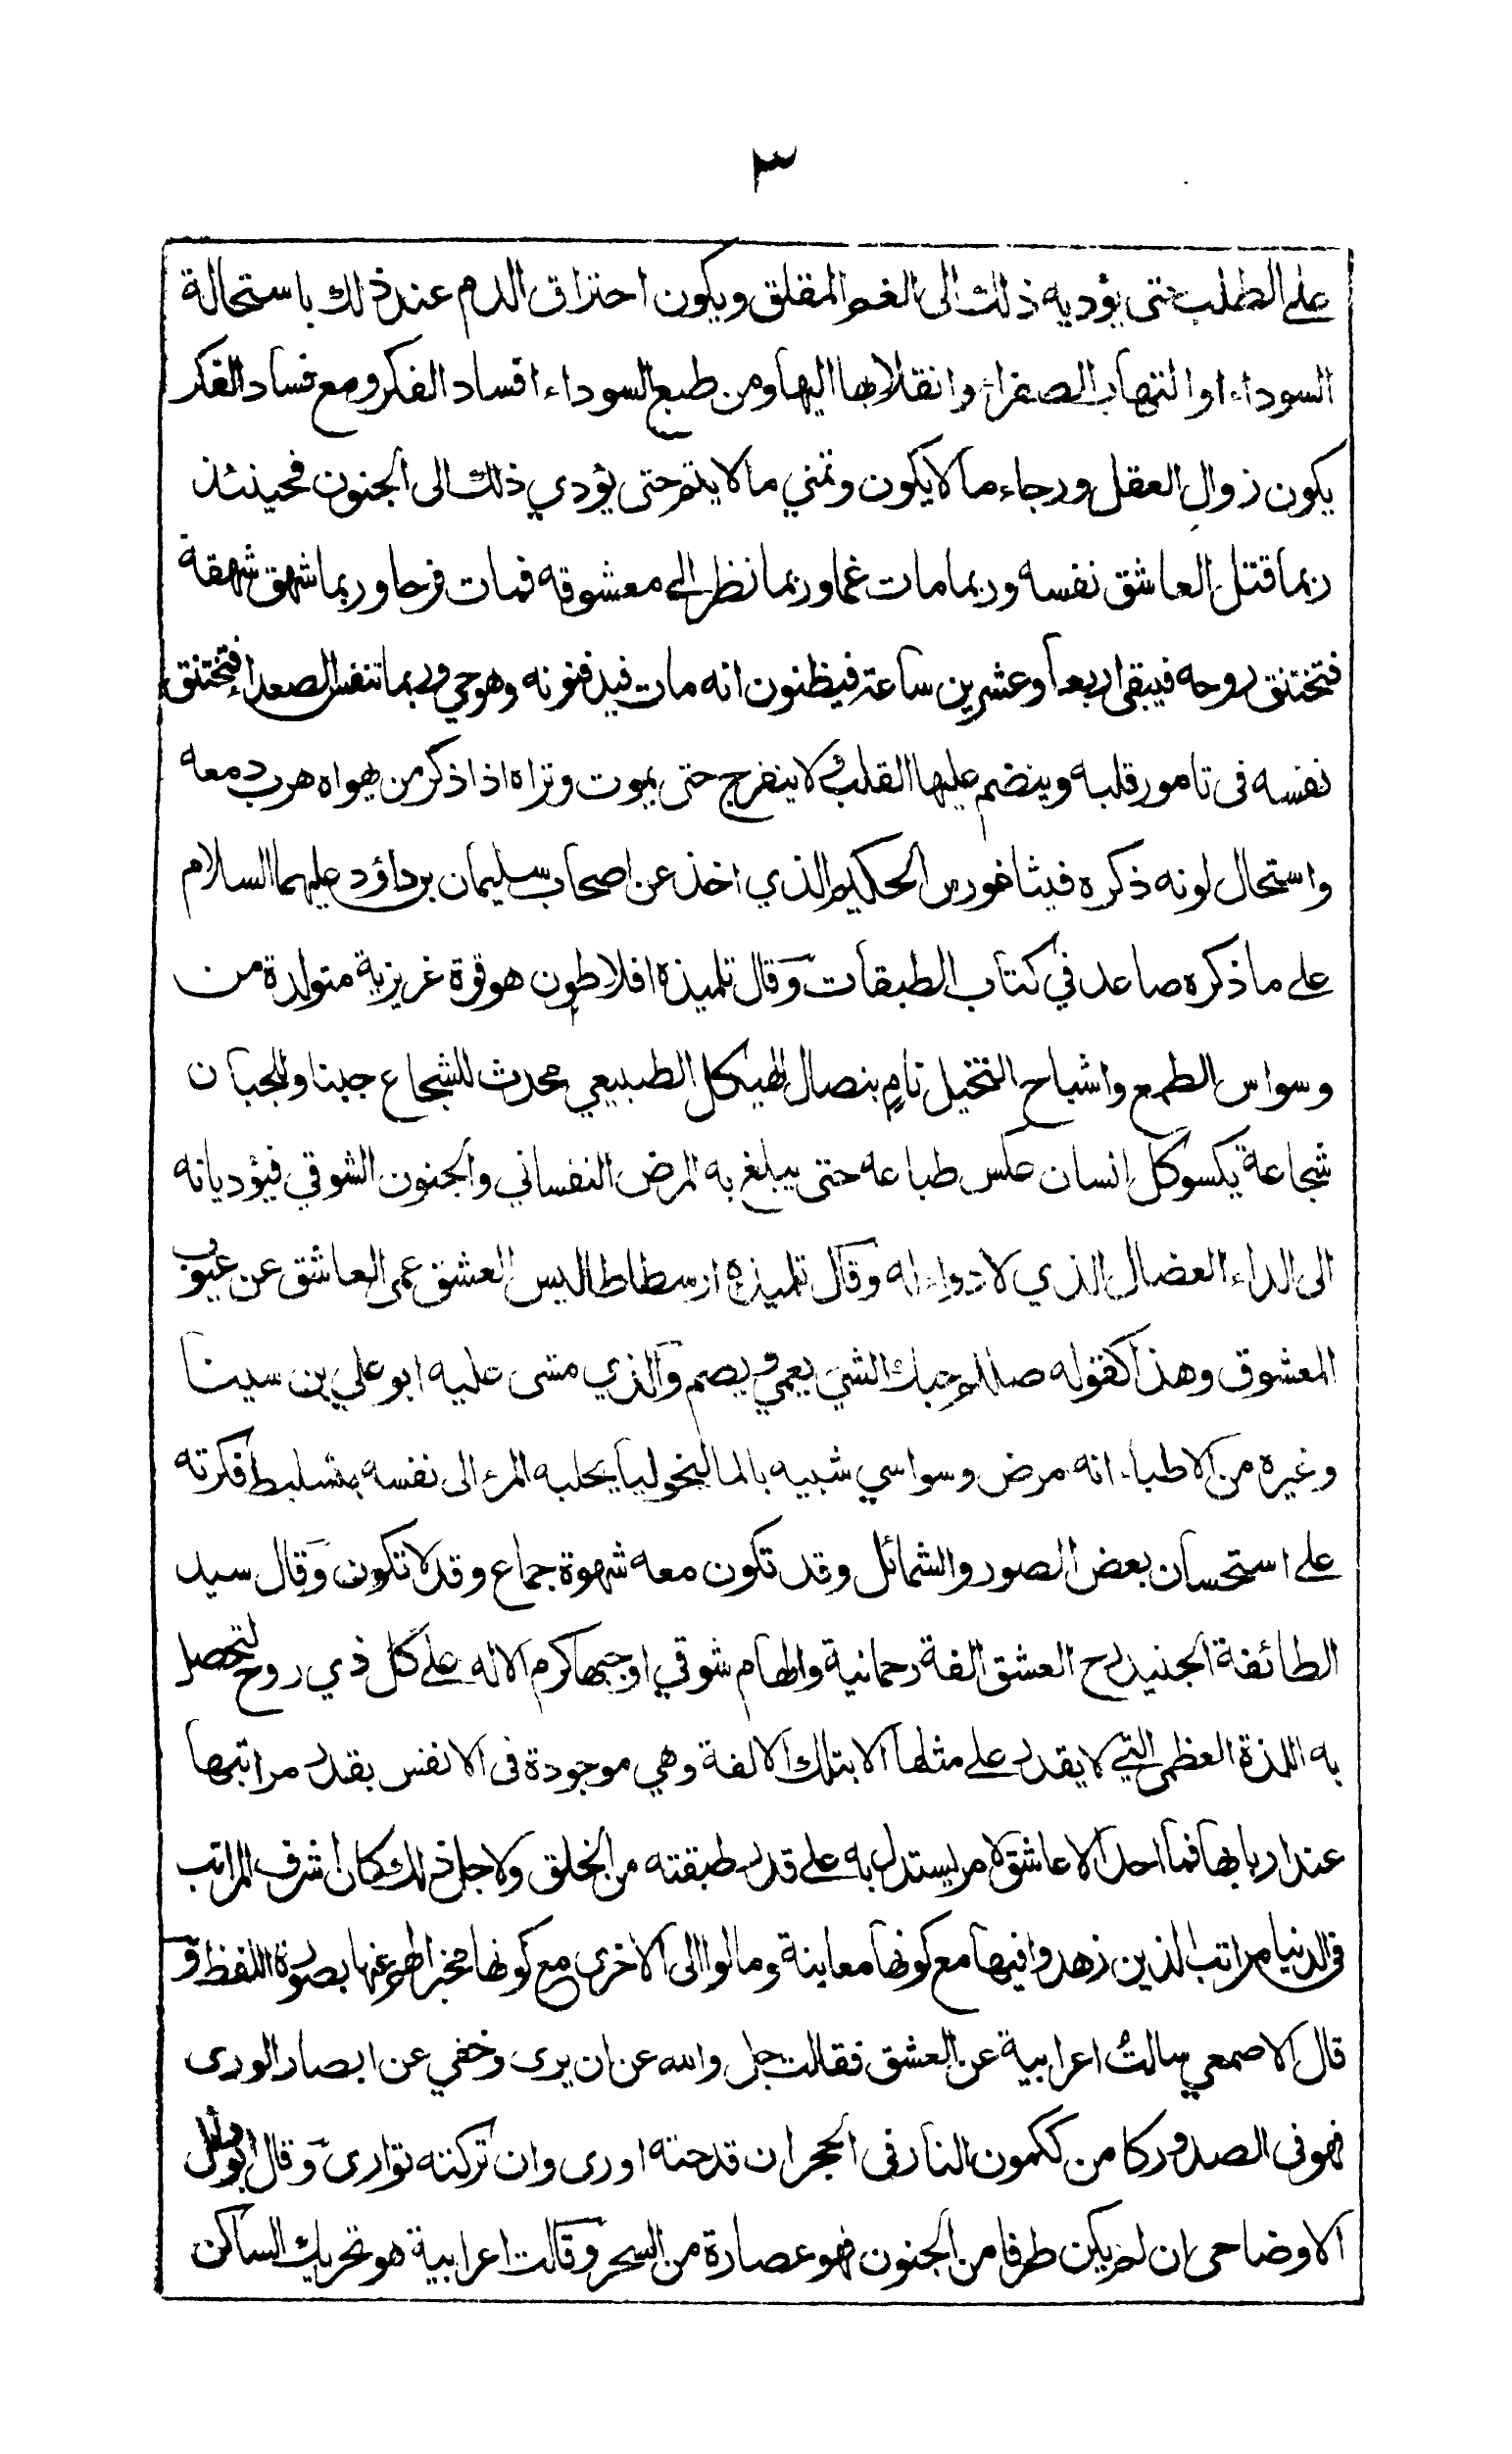 ٣
على الطلب حتى يؤديه ذلك الى الغم المقلق ويكون احتراق الدم عند ذلك باستحالة
السوداء او التهاب الصفراء وانقلابها اليها ومن طبع السوداء افساد الفكر ومع فساد الفكر
يكون زوال العقل ورجاء ما لا يكون وتمني ما لا يتم حتى يؤدي ذلك الى الجنون فحينئذ
ربما قتل العاشق نفسه وربما مات غما وربما نظر الى معشوقه فمات فرحا وربما شهق شهقة
فتختنق روحه فيبقى اربعا وعشرين ساعة فيظنون انه مات فيدفنونه وهو حي وربما تنفس الصعداء فتختنق
نفسه فى تامور قلبه وينضم عليها القلب ولا ينفرج حتى يموت وتراه اذا ذكر من يهواه هرب دمعه
واستحال لونه ذكره فيثاغورس الحكيم الذي اخذ عن اصحاب سليمان بن داؤد عليهما السلام
على ما ذكره صاعد في كتاب الطبقات وقال تلميذه افلاطون هو قوة غريزية متولدة من
وسواس الطمع واشباح التخيل نام بنصال الهيكل الطبيعي محدث للشجاع جبنا وللجبان
شجاعة يكسو كل انسان عكس طباعه حتى يبلغ به المرض النفساني والجنون الشوقي فيؤديانه
الى الداء العضال الذي لا دواء له وقال تلميذه ارسطاطاليس العشق عمى العاشق عن عيوب
المعشوق وهذا كقوله صللم حبك الشي يعمي ويصم والذي مشى عليه ابو علي بن سينا
وغيره من الاطباء انه مرض وسواسي شبيه بالمالنخوليا يجلبه المرء الى نفسه بتسليط فكرته
على استحسان بعض الصور والشمائل وقد تكون معه شهوة جماع وقد لا تكون وقال سيد
الطائفة الجنيد رح العشق الفة رحمانية والهام شوقي اوجبها كرم الاله على كل ذي روح لتحصل
به اللذة العظمى التي لا يقدر على مثلها الا بتلك الالفة وهي موجودة فى الانفس بقدر مراتبها
عند اربابها فما احد الا عاشق لامر يستدل به على قدر طبقته من الخلق ولاجل ذلك كان اشرف المراتب
فى الدنيا مراتب الذين زهدوا فيها مع كونها معاينة ومالوا الى الاخرى مع كونها مخبرا لهم عنها بصورة اللفظ و
قال الاصمعي سالتُ اعرابية عن العشق فقالت جل والله عن ان يرى وخفي عن ابصار الورى
فهو فى الصدور كامن ككمون النار فى الحجر ان قدحته اورى وان تركته توارى وقال ابو وائل
الاوضاحى ان لم يكن طرفا من الجنون فهو عصارة من السحر وقالت اعرابية هو تحريك الساكن